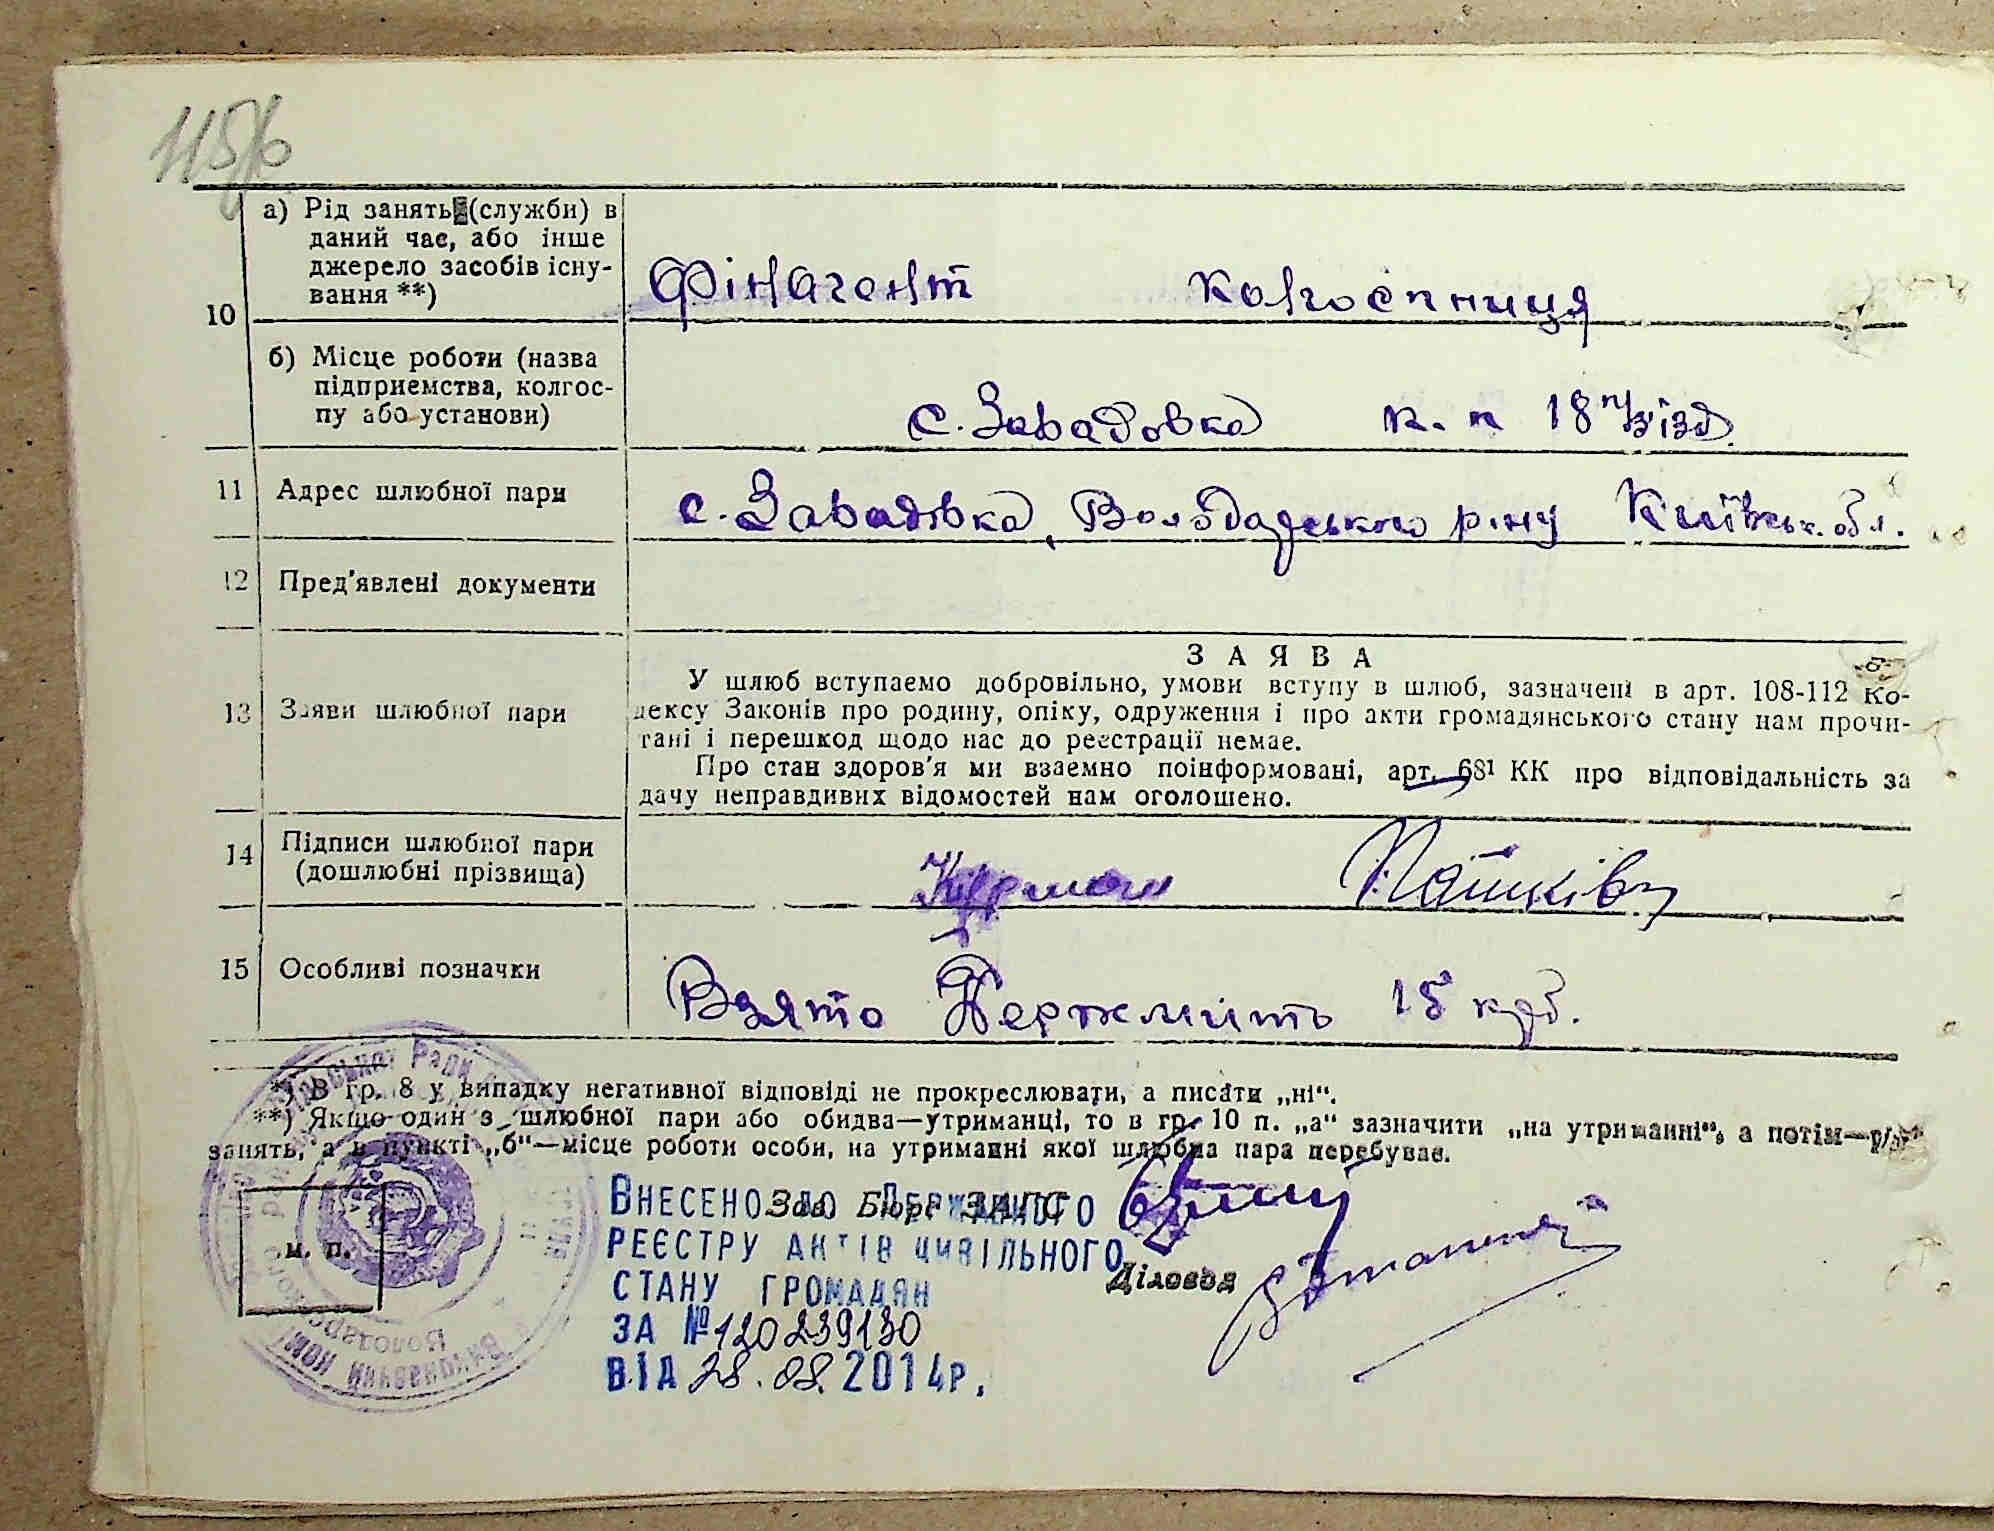 115
10
а) Рід занять (служби) в
даний час, або інше
джерело засобів існу-
вання **)
Фінагент колгоспниця
б) Місце роботи (назва
підприємства, колгос-
пу або установи)
с. Завадовка к. п 18 п/зїзд.
11 Адрес шлюбної пари
с. Завадівка, Володарського р-ну Київськ. обл.
12 Пред'явлені документи
13 Заяви шлюбної пари
ЗАЯВА
У шлюб вступаємо добровільно, умови вступу в шлюб, зазначені в арт. 108-112 Ко-
дексу Законів про родину, опіку, одруження і про акти громадянського стану нам прочи-
тані і перешкод щодо нас до реєстрації немає.
Про стан здоров'я ми взаємно поінформовані, арт. 68¹ КК про відповідальність за
дачу неправдивих відомостей нам оголошено.
14 Підписи шлюбної пари
(дошлюбні прізвища)
15 Особливі позначки
Взято Держмито 15 крб.
*) В гр. 8 у випадку негативної відповіді не прокреслювати, а писати „ні“.
**) Якщо один з шлюбної пари або обидва—утриманці, то в гр. 10 п. „а“ зазначити „на утриманні“, а потім—рід
занять, а в пункті „б“—місце роботи особи, на утриманні якої шлюбна пара перебуває.
м. п.
Зав. Бюро ЗАГС
Діловод
ВНЕСЕНО ДО ДЕРЖАВНОГО
РЕЄСТРУ АКТІВ ЦИВІЛЬНОГО
СТАНУ ГРОМАДЯН
ЗА №120239130
ВІД 28.08.2014р.